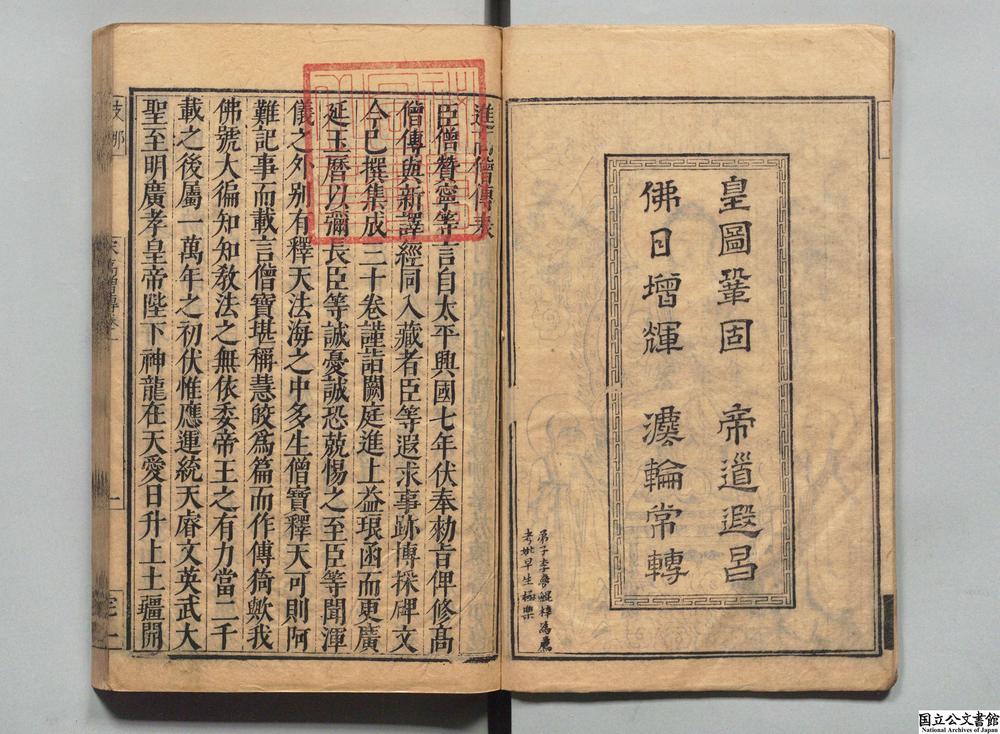 皇圖鞏固　帝道遐昌
佛日增輝　法輪常轉
弟子李 梓為薦
考妣早生極樂
進高僧傳表
臣僧贊寧等言自太平興國七年伏奉勑旨俾修高
僧傳與新譯經同入藏者臣等遐求事跡博採碑文
今已撰集成三十卷謹詣闕庭進上益琅函而更廣
延玉曆以彌長臣等誠憂誠恐兢惕之至臣等聞渾
儀之外别有釋天法海之中多生僧寶釋天可則阿
難記事而載言僧寶堪稱慧皎為篇而作傳猗歟我
佛號大徧知知教法之無依委帝王之有力當二千
載之後屬一萬年之初伏惟應運統天睿文英武大
聖至明廣孝皇帝陛下神龍在天愛日升上土疆開
宋高僧傳卷一
国立公文書館
National Archives of Japan